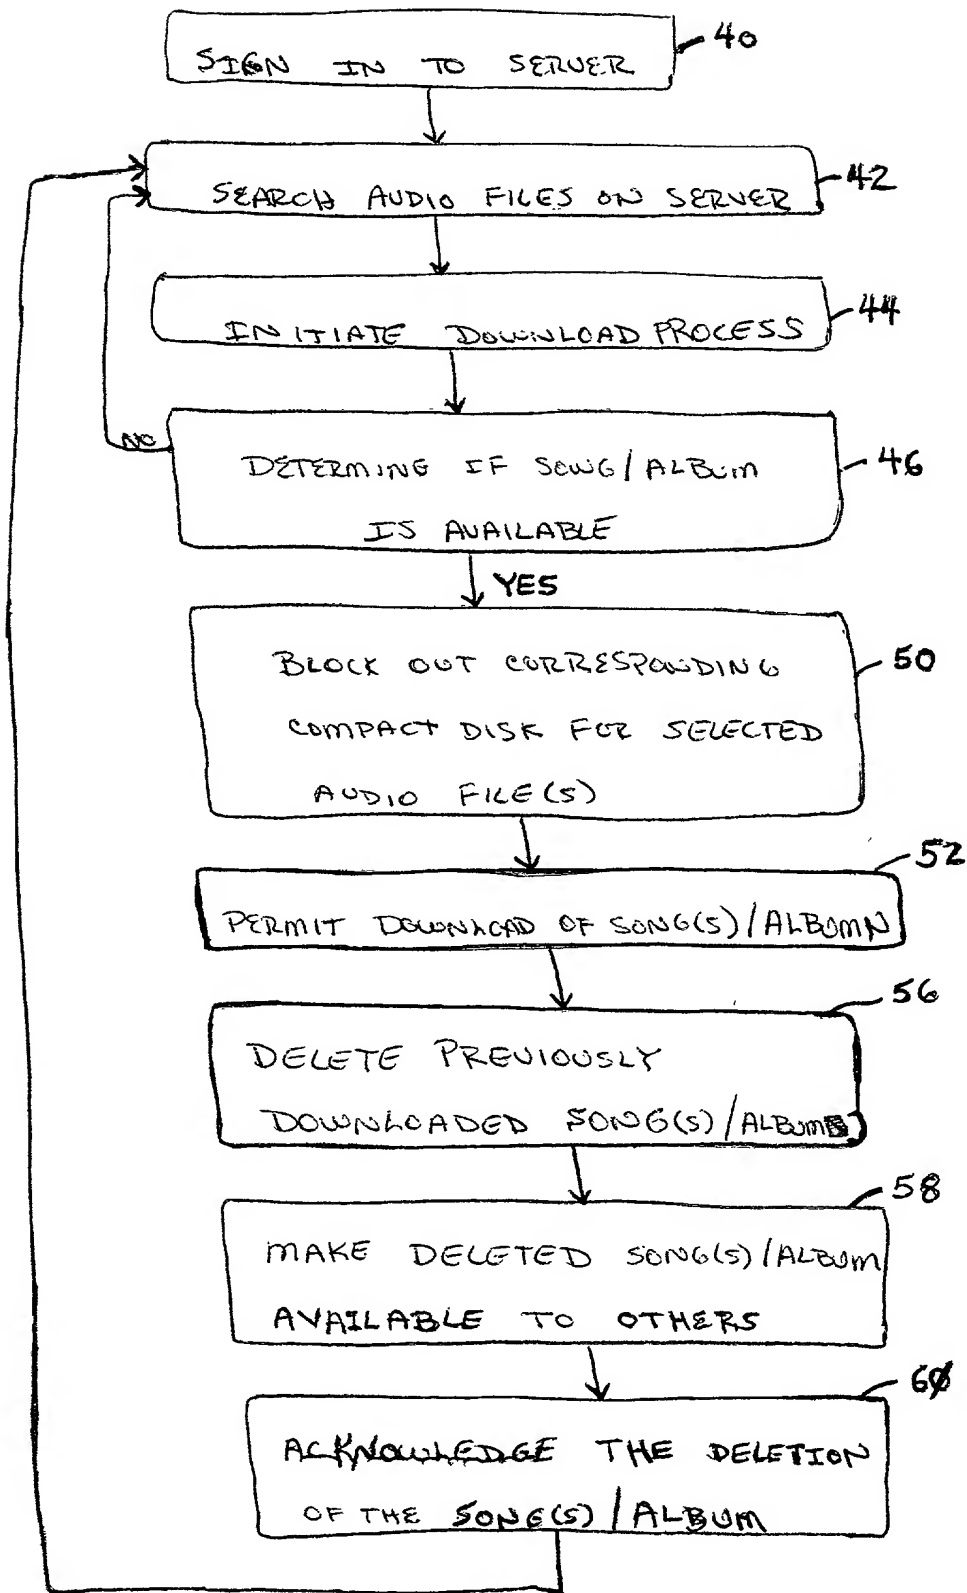 SIGN IN TO SERVER
40
SEARCH AUDIO FILES ON SERVER
42
INITIATE DOWNLOAD PROCESS
44
NO
DETERMINE IF SONG/ALBUM
46
IS AVAILABLE
YES
BLOCK OUT CORRESPONDING
50
COMPACT DISK FOR SELECTED
AUDIO FILE(S)
52
PERMIT DOWNLOAD OF SONG(S)/ALBUMN
56
DELETE PREVIOUSLY
DOWNLOADED SONG(S)/ALBUM
58
MAKE DELETED SONG(S)/ALBUM
AVAILABLE TO OTHERS
60
ACKNOWLEDGE THE DELETION
OF THE SONG(S)/ALBUM